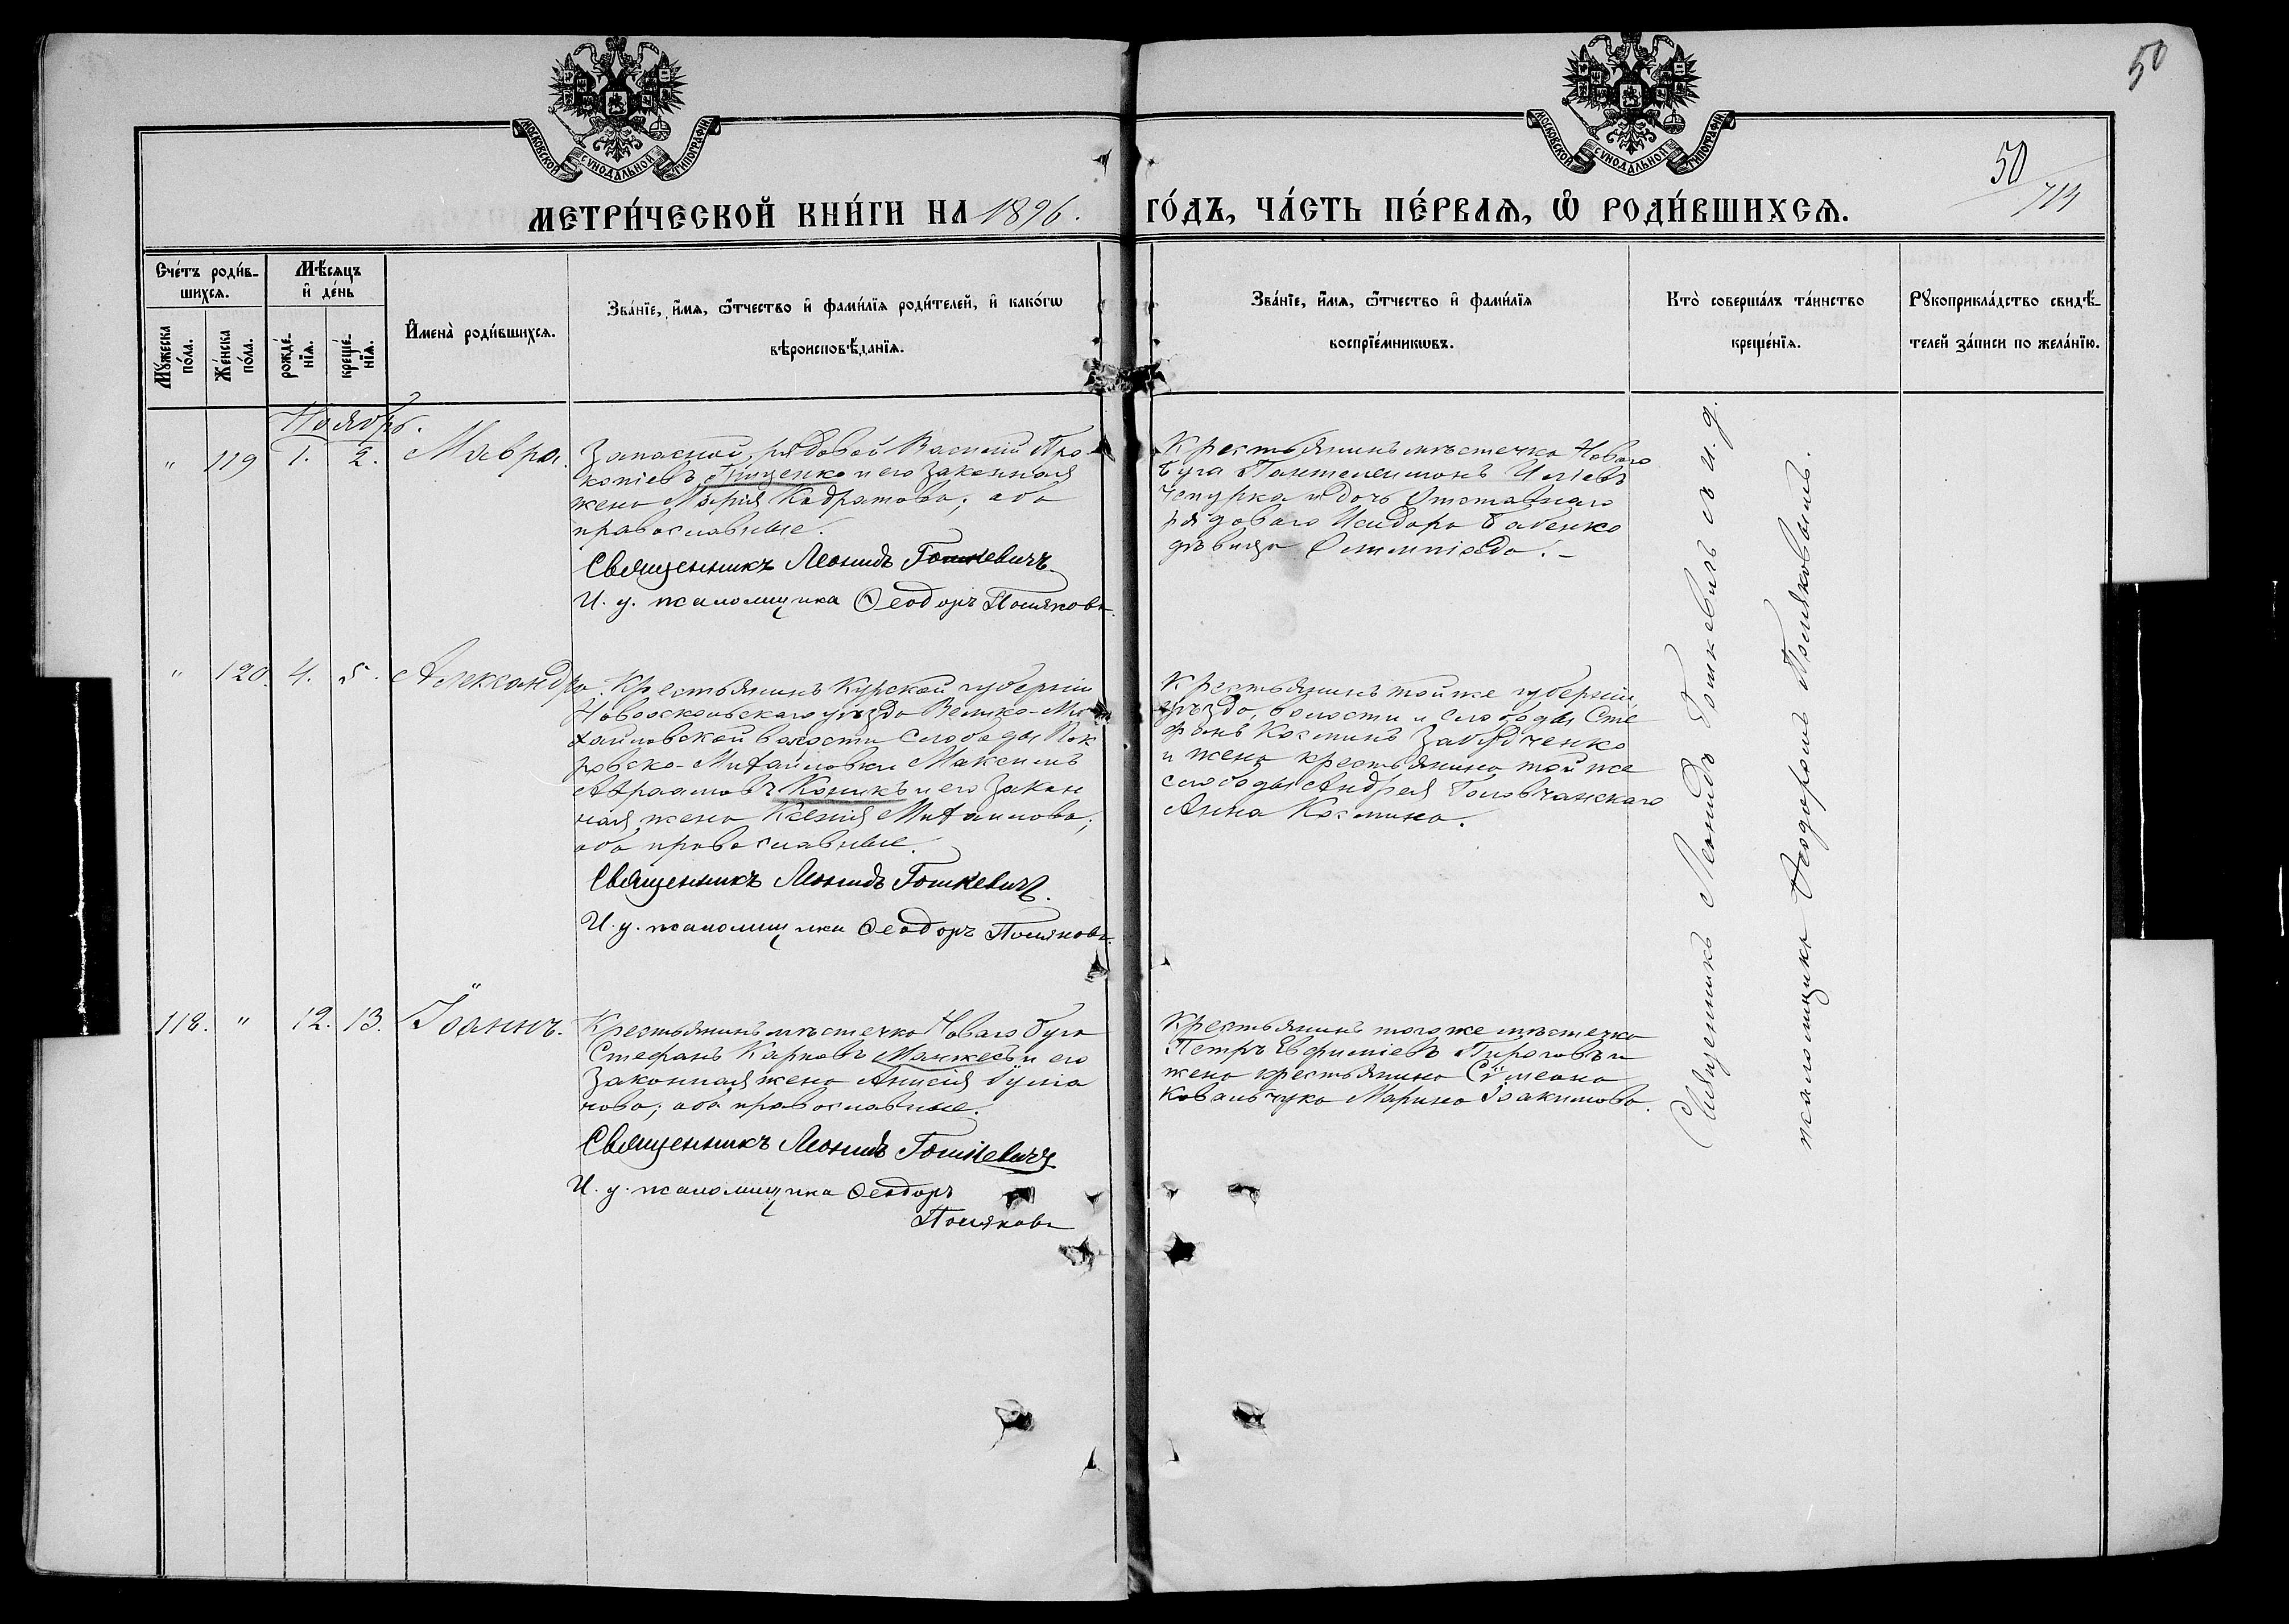 50
50/714
МОСКОВСКОЙ СѴНОДАЛЬНОЙ ТИПОГРАФІИ
МОСКОВСКОЙ СѴНОДАЛЬНОЙ ТИПОГРАФІИ
МЕТРИ́ЧЕСКОЙ КНИ́ГИ НА 1896. ГО́ДЪ, ЧА́СТЬ ПЕ́РВАѦ, Ѽ РОДИ́ВШИХСѦ.
Сче́тъ роди́в-
шихсѧ.
Мꙋ́жеска по́ла.
Же́нска по́ла.
Мѣ́сѧцъ
и҆ де́нь
рожде́-
нїѧ.
креще́-
нїѧ.
И҆мена̀ роди́вшихсѧ.
Зва́нїе, и҆́мѧ, ѻ҆́тчество и҆ фами́лїѧ роди́телей, и҆ како́гѡ
вѣроисповѣ́данїѧ.
Зва́нїе, и҆́мѧ, ѻ҆́тчество и҆ фами́лїѧ
воспрїе́мникѡвъ.
Кто̀ соверша́лъ та́инство
креще́нїѧ.
Рꙋкоприкла́дство свидѣ́-
телей за́писи по жела́нїю.
Ноябрь.
" 119 1. 2. Мавра.
Запасной рядовой Василій Про-
копіевъ Тищенко и его законная
жена Марія Кодратова; оба
православные.
Священникъ Леонидъ Гошкевичъ
И. д. псаломщика Ѳеодоръ Поляковъ.
Крестьянинъ мѣстечка Новаго
Буга Пантелеимонъ Иліевъ
Чепурка и дочь отставного
рядоваго Исидора Бабенко
дѣвица Олимпіада.–
" 120. 4. 5. Александра.
Крестьянинъ Курской губерніи
Новооскольскаго уѣзда Велико-Ми-
хайловской волости слободы Пок-
ровско-Михайловки Максимъ
Авраамовъ Коникъ и его закон
ная жена Ксенія Михаилова;
оба православные.
Священникъ Леонидъ Гошкевичъ.
И. д. псаломщика Ѳеодоръ Поляковъ.
Крестьянинъ той же губерніи,
уѣзда, волости и слободы Сте
фанъ Косминъ
и жена крестьянина той же
слободы Андрея Головчанскаго
Анна Космина.
118. " 12. 13. Іоаннъ.
Крестьянинъ мѣстечка Новаго Буга
Стефанъ Карповъ Манжесъ и его
законная жена Анисія Іулiа
нова; оба православные.
Священникъ Леонидъ Гошкевичъ
И. д. псаломщика Ѳеодоръ
Поляковъ
Крестьянинъ того же мѣстечка
Петръ Евфиміевъ Пироговъ и
жена крестьянина Сѵмеона
Ковальчука Марина Іоакимова.
Священникъ Леонидъ Гошкевичъ съ и. д.
псаломщика Ѳеодоромъ Поляковымъ.